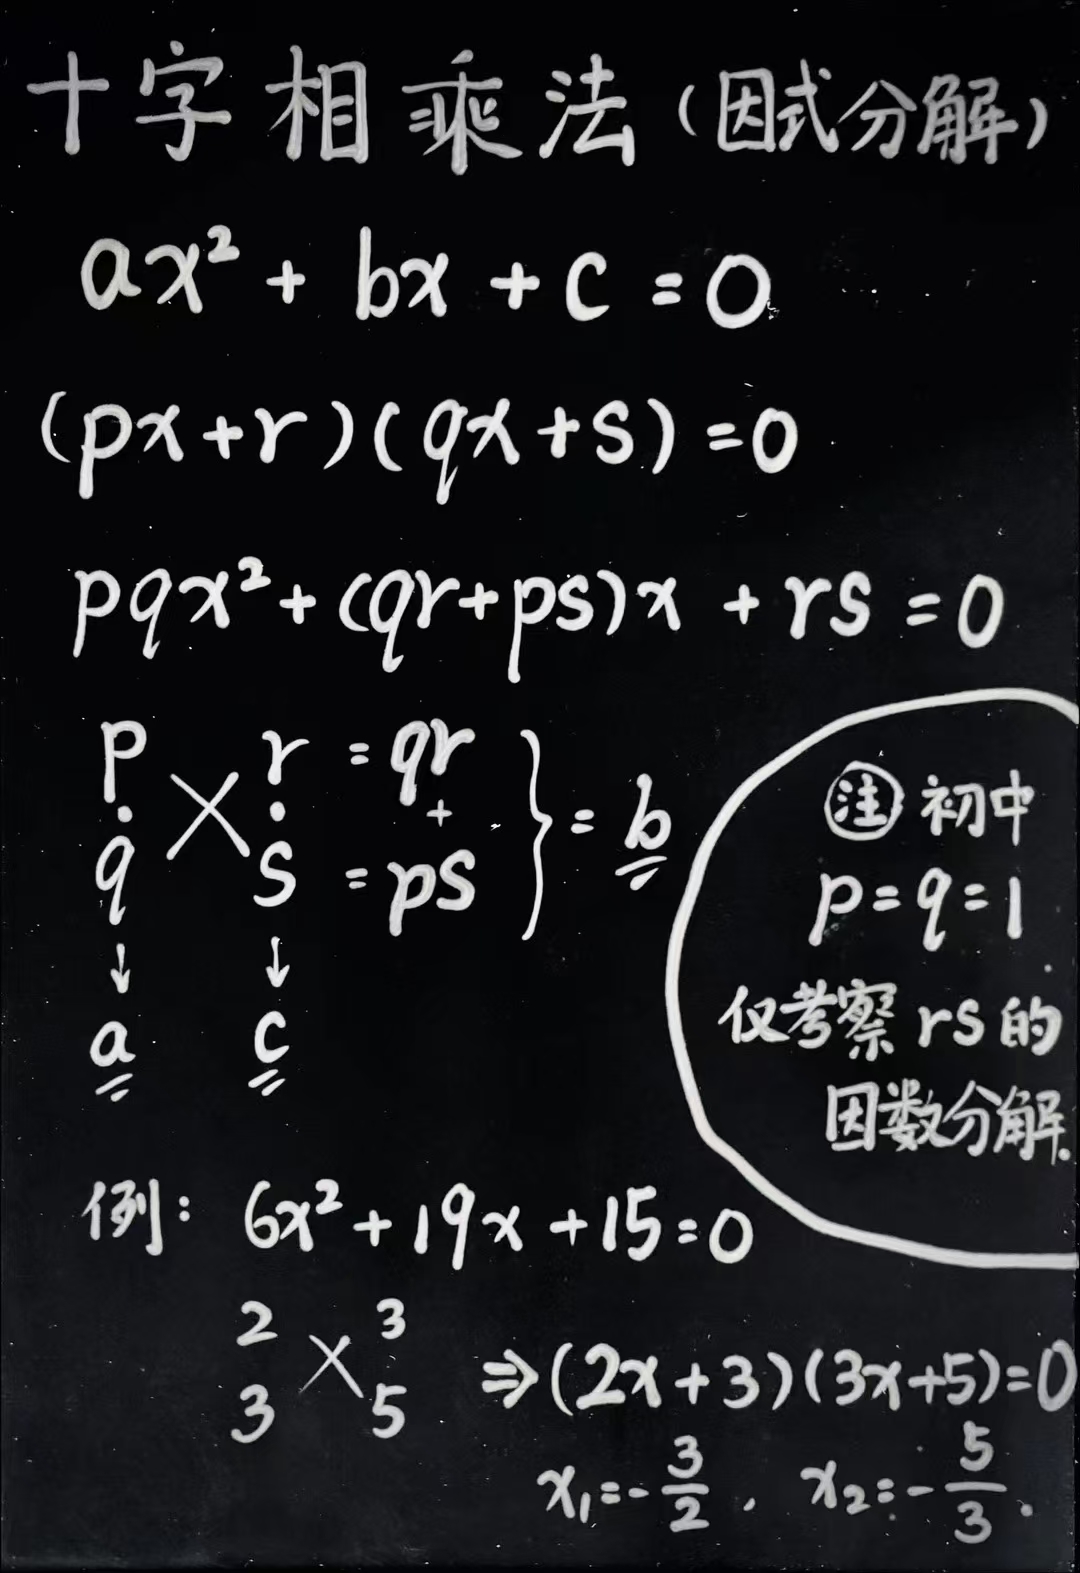 十字相乘法(因式分解)
ax² + bx + c = 0
(px+r)(qx+s) = 0
pqx² + (qr+ps)x + rs = 0
p r = qr
· × · + } = b
q s = ps
↓ ↓
a c
注 初中
p = q = 1
仅考察 rs 的
因数分解.
例: 6x² + 19x + 15 = 0
2 3
× ⇒ (2x+3)(3x+5)=0
3 5
x₁=-3/2, x₂=-5/3.